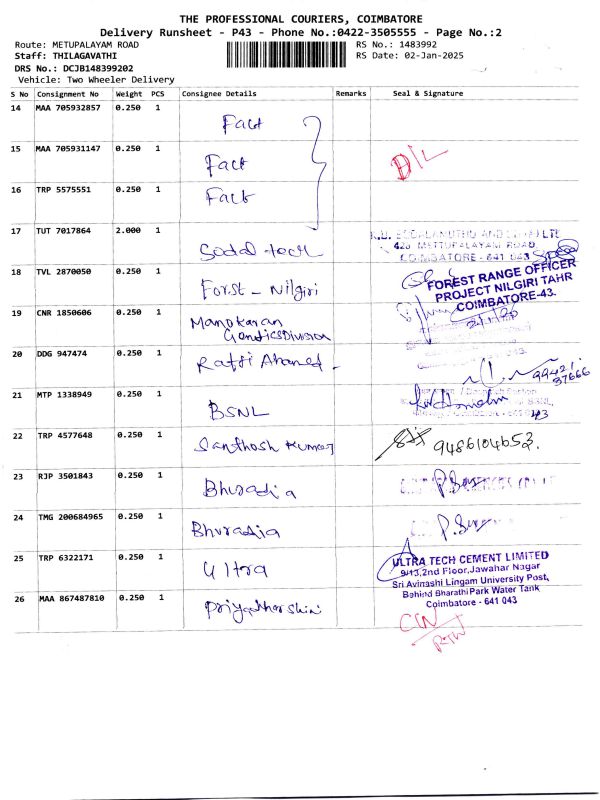 THE PROFESSIONAL COURIERS, COIMBATORE
Delivery Runsheet - P43 - Phone No.:0422-3505555 - Page No.:2
Route: METUPALAYAM ROAD RS No.: 1483992
Staff: THILAGAVATHI RS Date: 02-Jan-2025
DRS No.: DCJB148399202
Vehicle: Two Wheeler Delivery
S No Consignment No Weight PCS Consignee Details Remarks Seal & Signature
14 MAA 705932857 0.250 1 Fact
15 MAA 705931147 0.250 1 Fact D/L
16 TRP 5575551 0.250 1 Fact
17 TUT 7017864 2.000 1
420 METTUPALAYAM ROAD
COIMBATORE - 641 043
18 TVL 2870050 0.250 1 Forst - Nilgiri
FOREST RANGE OFFICER
PROJECT NILGIRI TAHR
COIMBATORE-43.
19 CNR 1850606 0.250 1 Manokaran
Genetics Division
20 DDG 947474 0.250 1 Rafji Ahamed -
99421
97666
21 MTP 1338949 0.250 1 BSNL
22 TRP 4577648 0.250 1 Santhosh Kumar 9486104653.
23 RJP 3501843 0.250 1 Bhuradia
24 TMG 200684965 0.250 1 Bhuradia
25 TRP 6322171 0.250 1 Ultra
ULTRA TECH CEMENT LIMITED
9/13,2nd Floor,Jawahar Nagar
Sri Avinashi Lingam University Post,
Behind Bharathi Park Water Tank
Coimbatore - 641 043
26 MAA 867487810 0.250 1 Priyadharshini